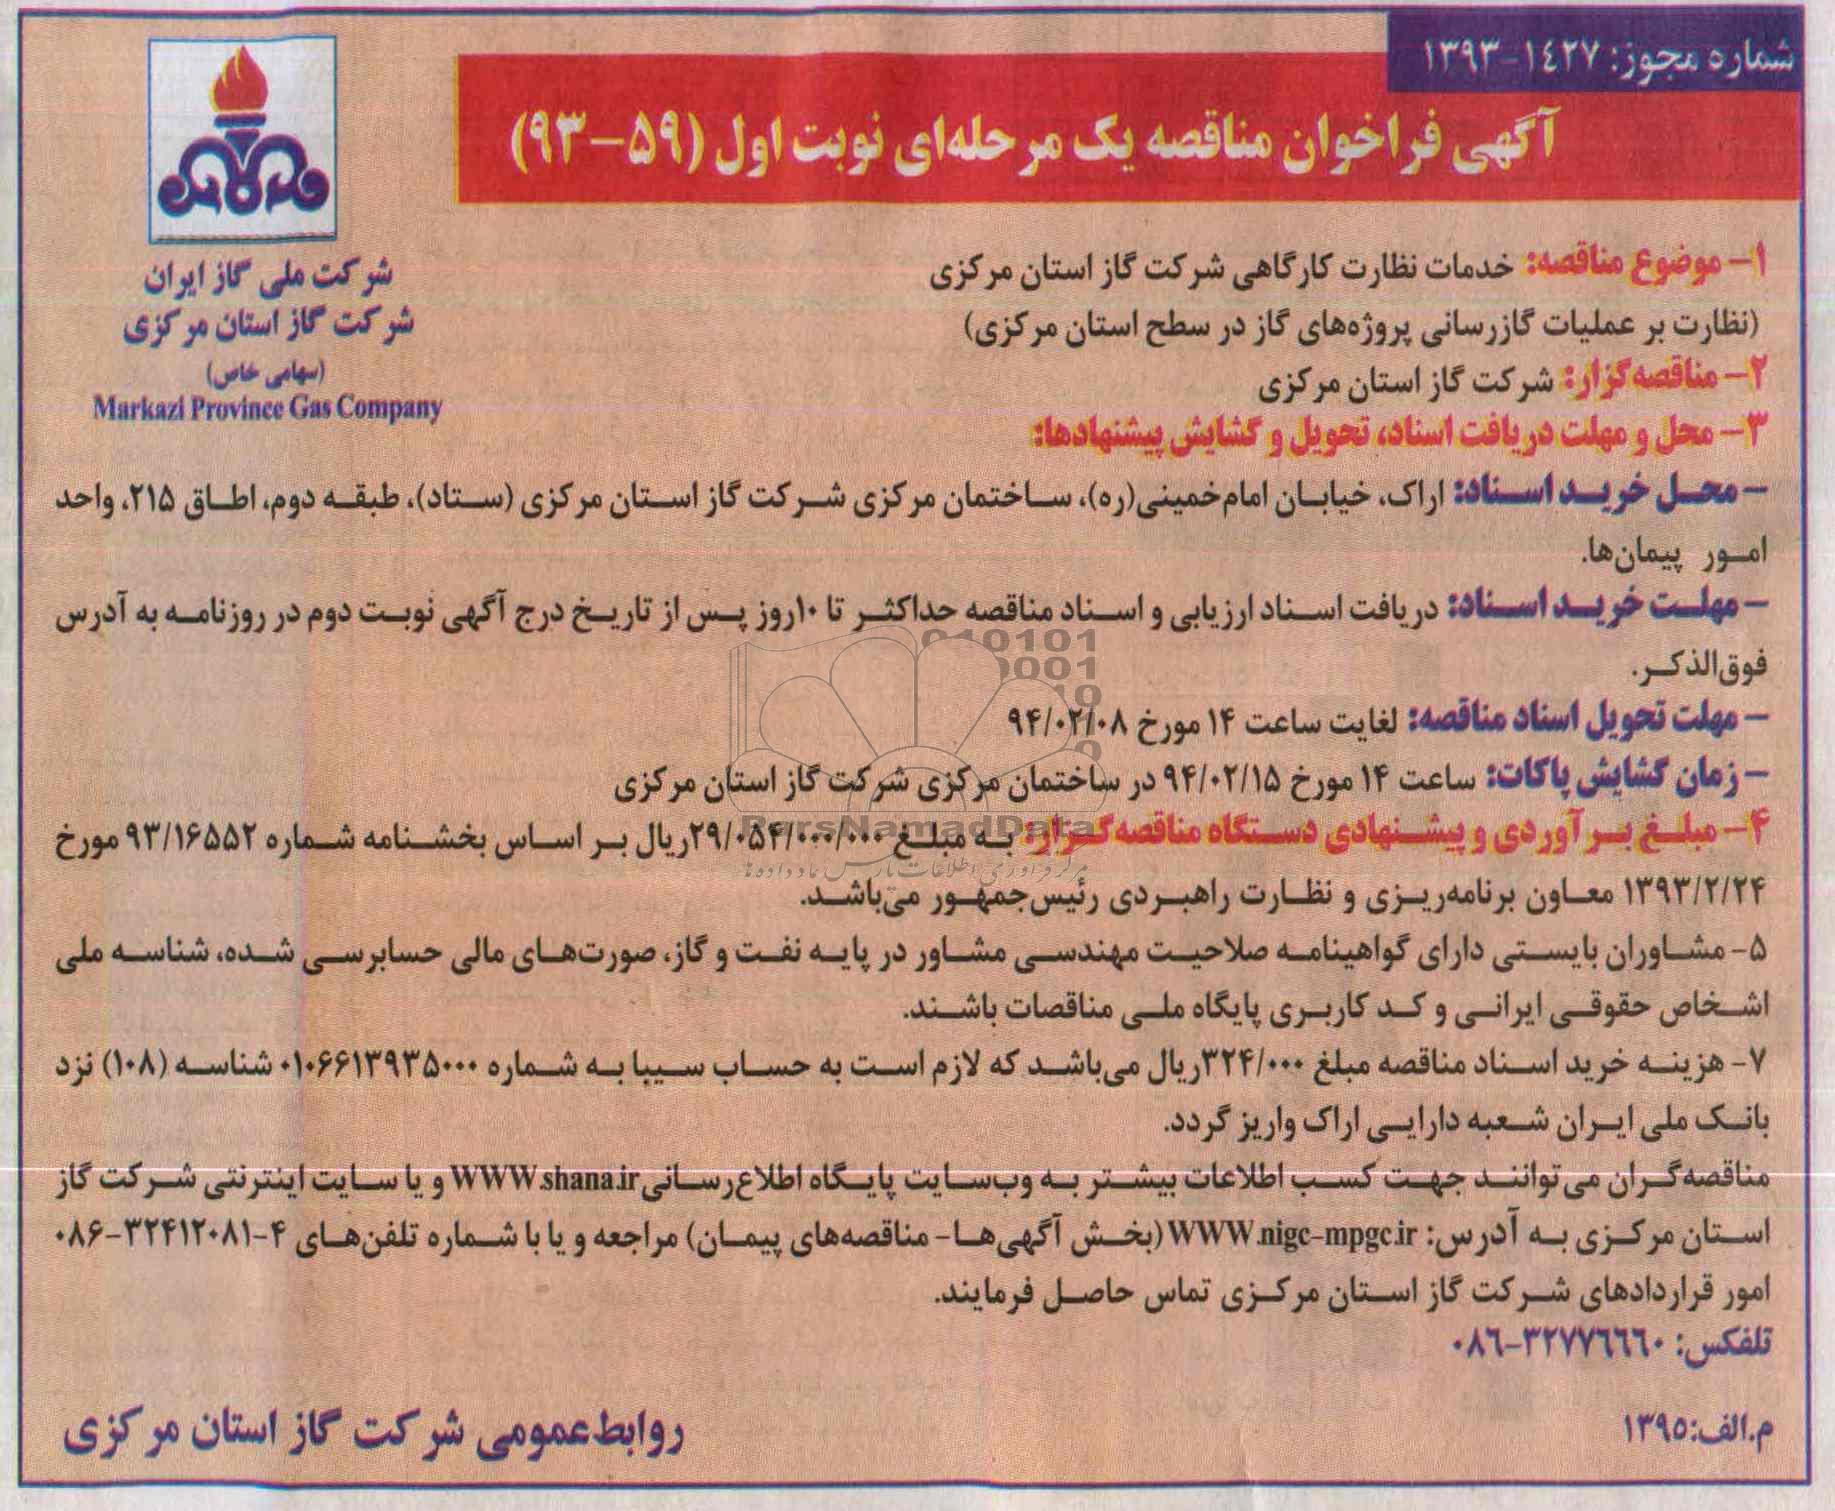 شماره مجوز: ۱۴۲۷-۱۳۹۳
آگهی فراخوان مناقصه یک مرحله‌ای نوبت اول (۵۹-۹۳)
شرکت ملی گاز ایران
شرکت گاز استان مرکزی
(سهامی خاص)
Markazi Province Gas Company
۱- موضوع مناقصه: خدمات نظارت کارگاهی شرکت گاز استان مرکزی
(نظارت بر عملیات گازرسانی پروژه‌های گاز در سطح استان مرکزی)
۲- مناقصه‌گزار: شرکت گاز استان مرکزی
۳- محل و مهلت دریافت اسناد، تحویل و گشایش پیشنهادها:
- محل خرید اسناد: اراک، خیابان امام‌خمینی(ره)، ساختمان مرکزی شرکت گاز استان مرکزی (ستاد)، طبقه دوم، اطاق ۲۱۵، واحد
امور پیمان‌ها.
- مهلت خرید اسناد: دریافت اسناد ارزیابی و اسناد مناقصه حداکثر تا ۱۰روز پس از تاریخ درج آگهی نوبت دوم در روزنامه به آدرس
فوق‌الذکر.
- مهلت تحویل اسناد مناقصه: لغایت ساعت ۱۴ مورخ ۹۴/۰۲/۰۸
- زمان گشایش پاکات: ساعت ۱۴ مورخ ۹۴/۰۲/۱۵ در ساختمان مرکزی شرکت گاز استان مرکزی
۴- مبلغ برآوردی و پیشنهادی دستگاه مناقصه‌گزار: به مبلغ ۲۹/۰۵۴/۰۰۰/۰۰۰ریال بر اساس بخشنامه شماره ۹۳/۱۶۵۵۲ مورخ
۱۳۹۳/۲/۲۴ معاون برنامه‌ریزی و نظارت راهبردی رئیس‌جمهور می‌باشد.
۵- مشاوران بایستی دارای گواهینامه صلاحیت مهندسی مشاور در پایه نفت و گاز، صورت‌های مالی حسابرسی شده، شناسه ملی
اشخاص حقوقی ایرانی و کد کاربری پایگاه ملی مناقصات باشند.
۷- هزینه خرید اسناد مناقصه مبلغ ۳۲۴/۰۰۰ریال می‌باشد که لازم است به حساب سیبا به شماره ۰۱۰۶۶۱۳۹۳۵۰۰۰ شناسه (۱۰۸) نزد
بانک ملی ایران شعبه دارایی اراک واریز گردد.
مناقصه‌گران می‌توانند جهت کسب اطلاعات بیشتر به وب‌سایت پایگاه اطلاع‌رسانی WWW.shana.ir و یا سایت اینترنتی شرکت گاز
استان مرکزی به آدرس: WWW.nigc-mpgc.ir (بخش آگهی‌ها- مناقصه‌های پیمان) مراجعه و یا با شماره تلفن‌های ۴-۳۲۴۱۲۰۸۱-۰۸۶
امور قراردادهای شرکت گاز استان مرکزی تماس حاصل فرمایند.
تلفکس: ۳۲۷۷۶۶۶۰-۰۸۶
م.الف:۱۳۹۵
روابط‌عمومی شرکت گاز استان مرکزی
ParsNamadData